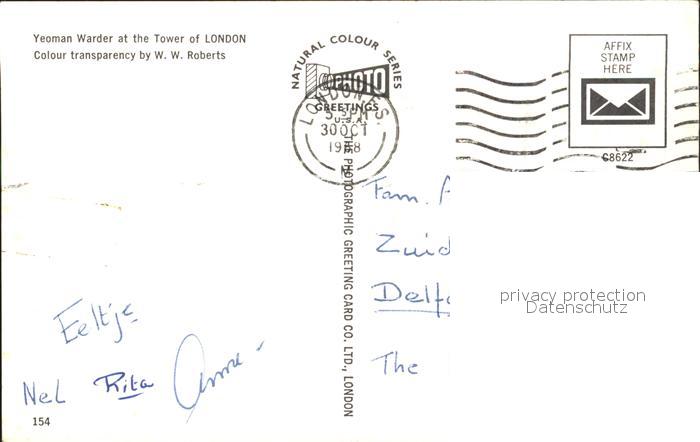 Yeoman Warder at the Tower of LONDON
Colour transparency by W. W. Roberts
NATURAL COLOUR SERIES
PHOTO
GREETINGS
U.S.A.
LONDON
30 OCT
AFFIX
STAMP
HERE
C8622
THE PHOTOGRAPHIC GREETING CARD CO. LTD., LONDON
Fam. A
Zuid
Delf
The
privacy protection
Datenschutz
Eeltje
Nel Rita Anne
154